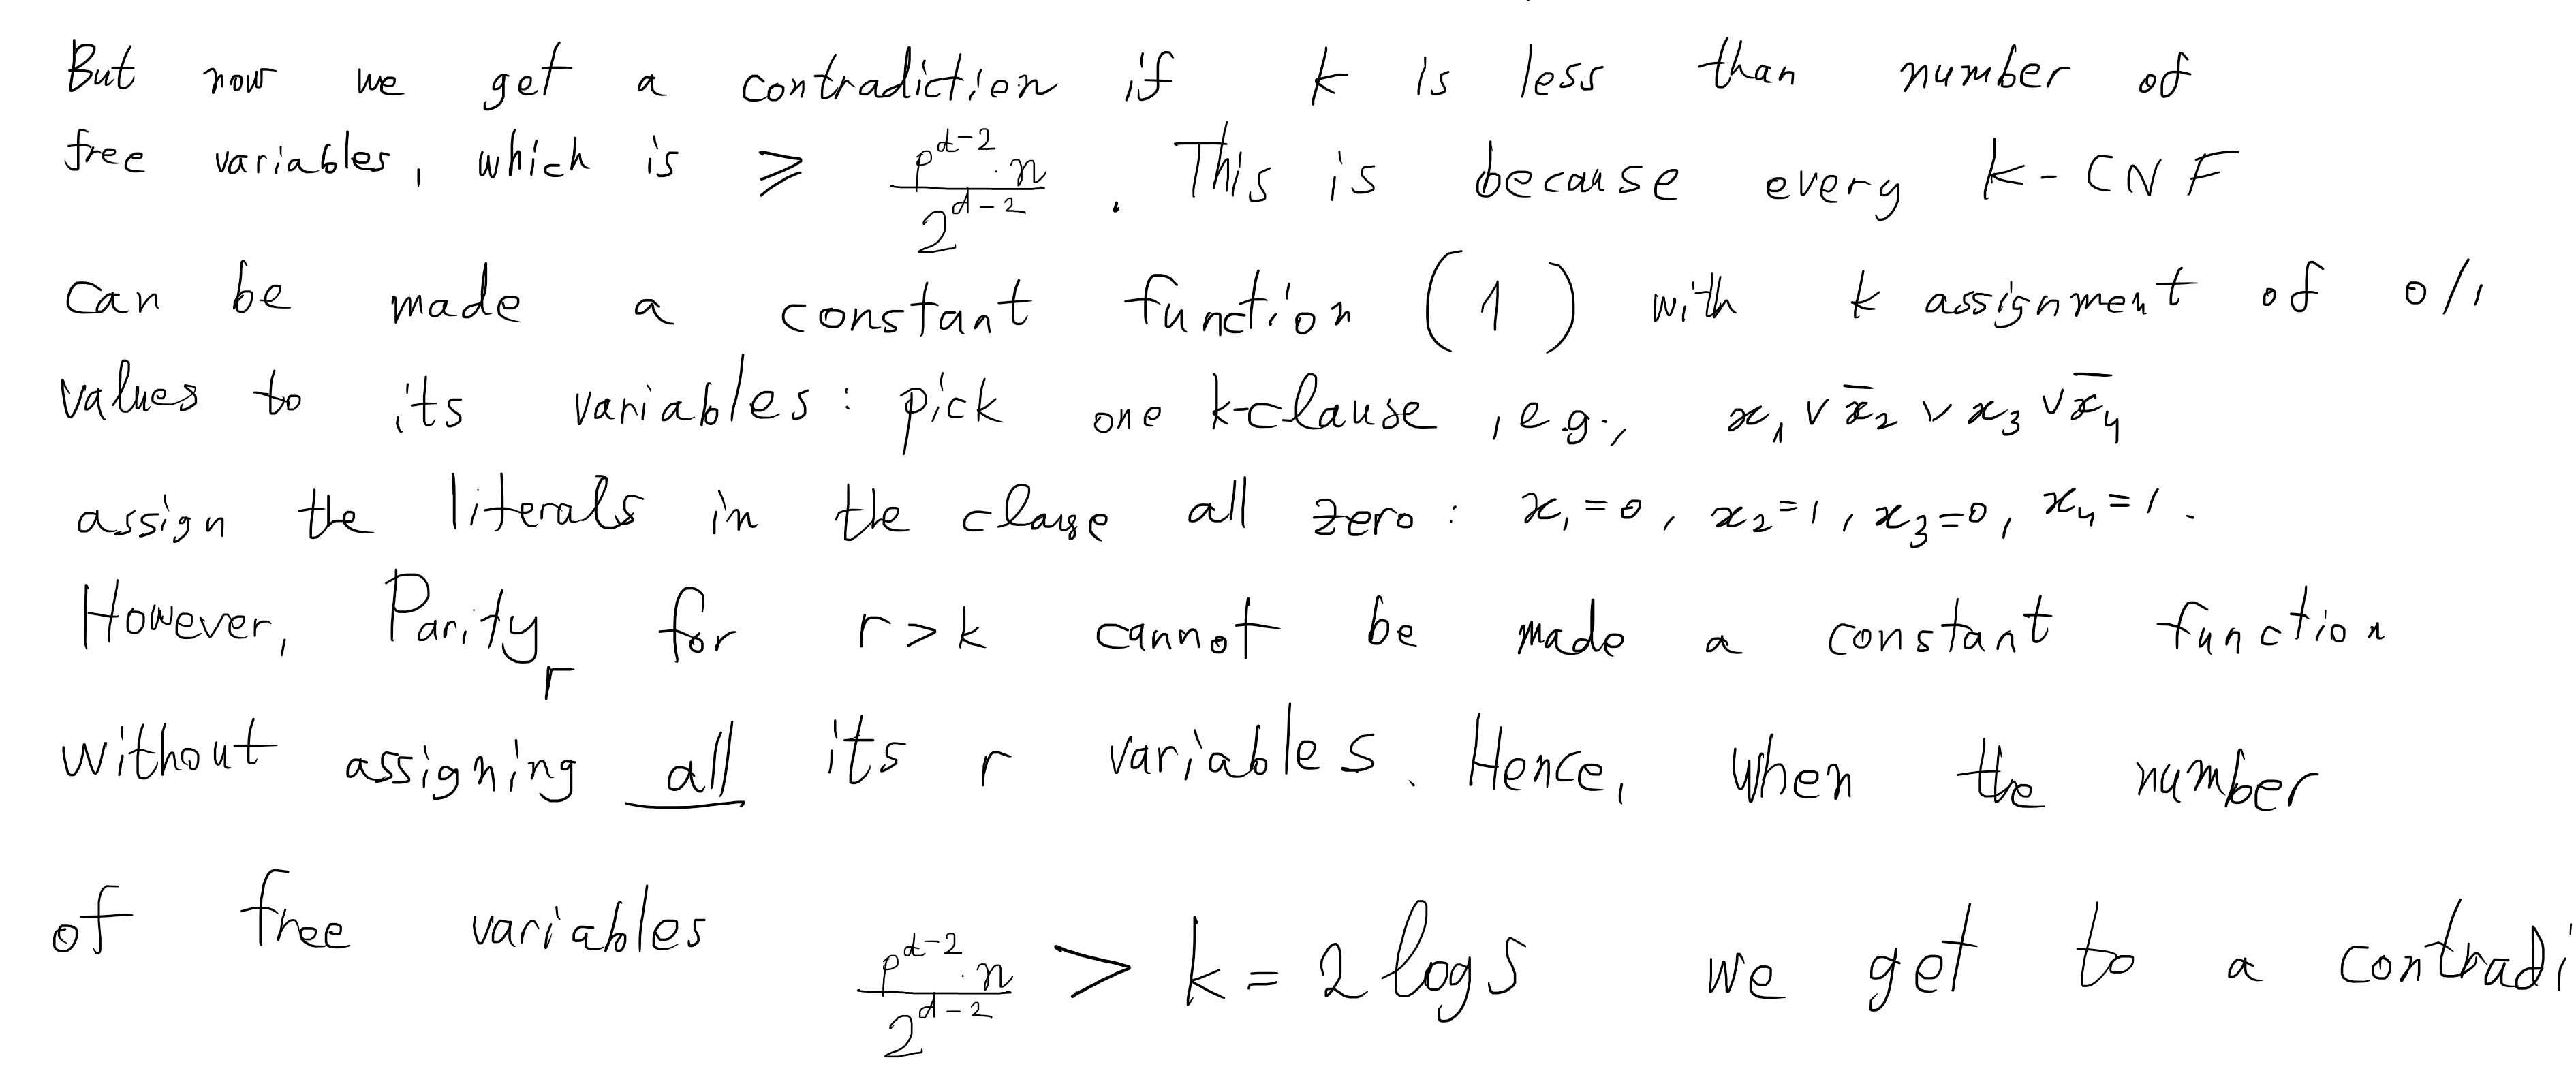 But now we get a contradiction if k is less than number of
free variables, which is ≥ \frac{p^{d-2} \cdot n}{2^{d-2}}. This is because every k-CNF
can be made a constant function (1) with k assignment of 0/1
values to its variables: pick one k-clause, e.g., x₁ ∨ x̄₂ ∨ x₃ ∨ x̄₄
assign the literals in the clause all zero: x₁=0, x₂=1, x₃=0, x₄=1.
However, Parity_r for r>k cannot be made a constant function
without assigning all its r variables. Hence, when the number
of free variables \frac{p^{d-2} \cdot n}{2^{d-2}} > k = 2 log S we get to a contradi